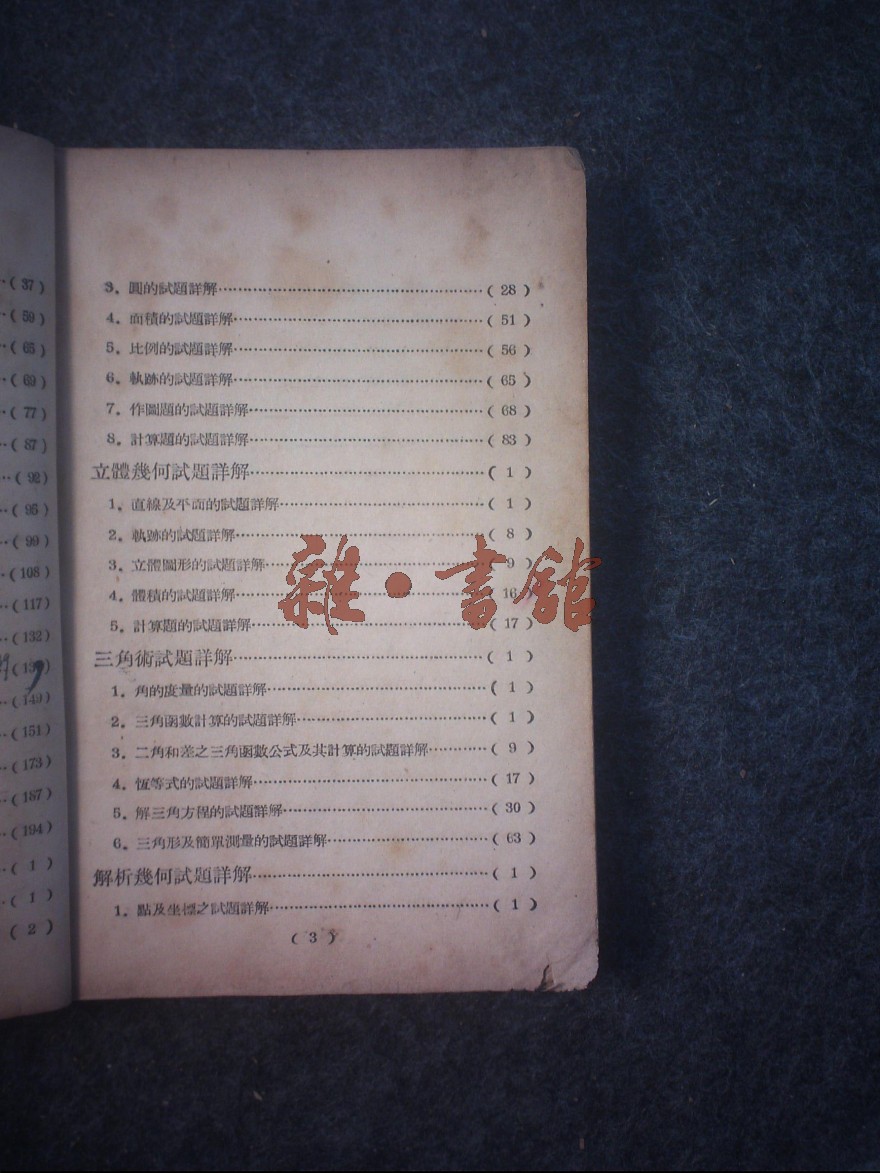 (37)
(59)
(65)
(69)
(77)
(87)
(92)
(95)
(99)
(108)
(117)
(132)
(149)
(151)
(173)
(187)
(194)
(1)
(1)
(2)
3. 圓的試題詳解……(28)
4. 面積的試題詳解……(51)
5. 比例的試題詳解……(56)
6. 軌跡的試題詳解……(65)
7. 作圖題的試題詳解……(68)
8. 計算題的試題詳解……(83)
立體幾何試題詳解……(1)
1. 直線及平面的試題詳解……(1)
2. 軌跡的試題詳解……(8)
3. 立體圖形的試題詳解……(9)
4. 體積的試題詳解……(16)
5. 計算題的試題詳解……(17)
三角術試題詳解……(1)
1. 角的度量的試題詳解……(1)
2. 三角函數計算的試題詳解……(1)
3. 二角和差之三角函數公式及其計算的試題詳解……(9)
4. 恆等式的試題詳解……(17)
5. 解三角方程的試題詳解……(30)
6. 三角形及簡單測量的試題詳解……(63)
解析幾何試題詳解……(1)
1. 點及坐標之試題詳解……(1)
(3)
雜·書館